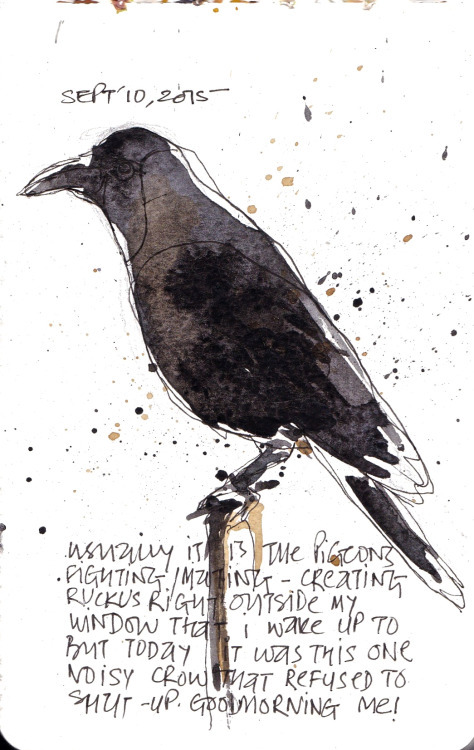 SEPT'10, 2015
USUALLY IT IS THE PIGEONS
FIGHTING/MATING - CREATING
RUCKUS RIGHT OUTSIDE MY
WINDOW THAT I WAKE UP TO
BUT TODAY IT WAS THIS ONE
NOISY CROW THAT REFUSED TO
SHUT-UP. GOODMORNING ME!